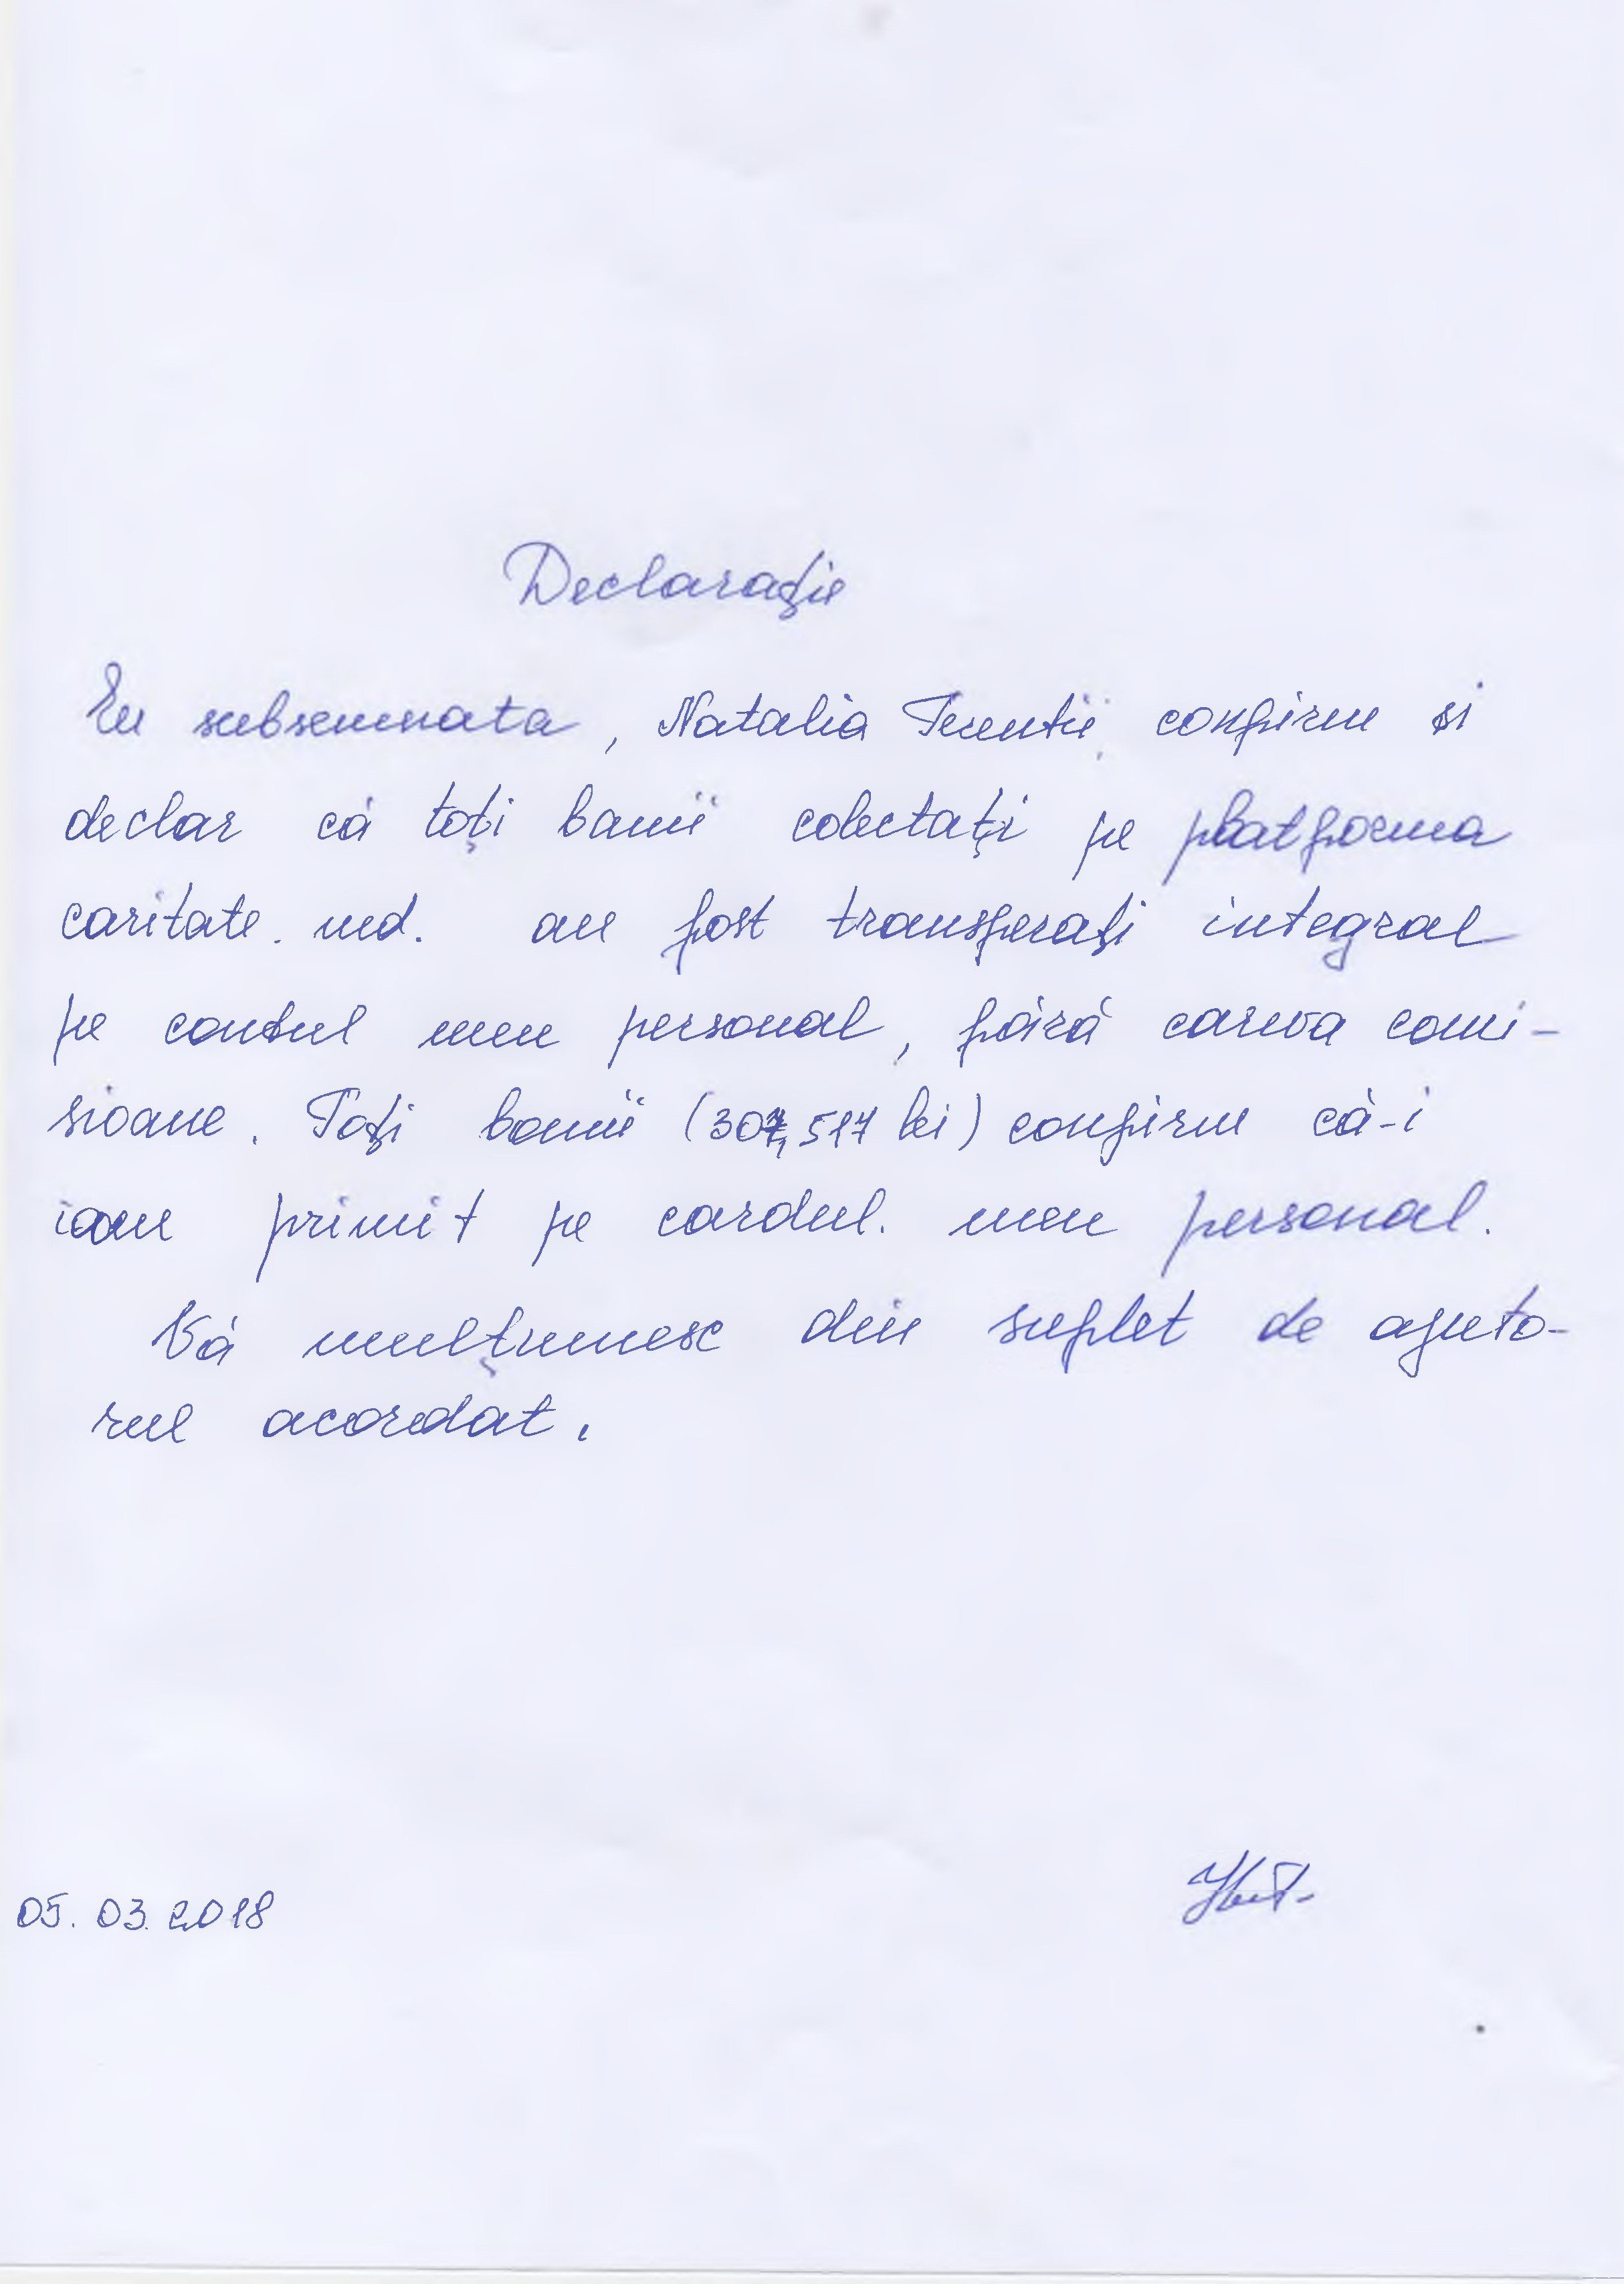 Declarație
Eu subsemnata, Natalia Terentii, confirm și
declar că toți banii colectați pe platforma
caritate.md. au fost transferați integral
pe contul meu personal, fără careva comi-
sioane. Toți banii (307,517 lei) confirm că-i
iam primit pe cardul. meu personal.
Vă mulțumesc din suflet de ajuto-
rul acordat.
05.03.2018